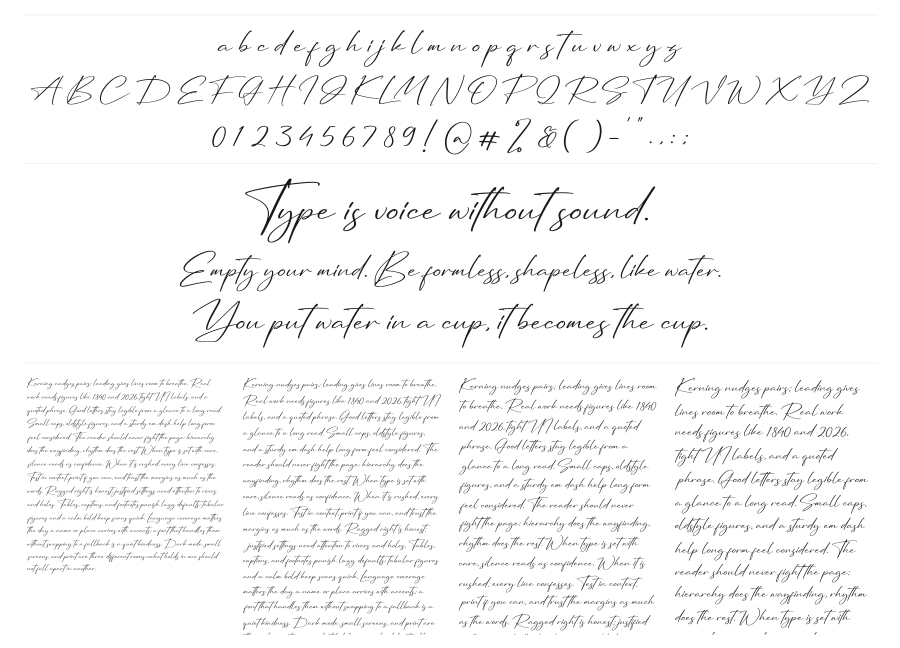 a b c d e f g h i j k l m n o p q r s t u v w x y z
A B C D E F G H I J K L M N O P Q R S T U V W X Y Z
0 1 2 3 4 5 6 7 8 9 ! @ # % & ( ) - ' " . , : ;
Type is voice without sound.
Empty your mind. Be formless, shapeless, like water.
You put water in a cup, it becomes the cup.
Kerning nudges pairs; leading gives lines room to breathe. Real
work needs figures like 1840 and 2026, tight UI labels, and a
quoted phrase. Good letters stay legible from a glance to a long read.
Small caps, oldstyle figures, and a sturdy em dash help long form
feel considered. The reader should never fight the page: hierarchy
does the wayfinding, rhythm does the rest. When type is set with care,
silence reads as confidence. When it's rushed, every line confesses.
Test in context, print if you can, and trust the margins as much as the
words. Ragged right is honest, justified settings need attention to rivers
and holes. Tables, captions, and footnotes punish lazy defaults; tabular
figures and a calm bold keep scans quick. Language coverage matters
the day a name or place arrives with accents; a font that handles them
without snapping to a fallback is a quiet kindness. Dark mode, small
screens, and print are three different rooms—what holds in one should
not fall apart in another.
Kerning nudges pairs; leading gives lines room to breathe.
Real work needs figures like 1840 and 2026, tight UI
labels, and a quoted phrase. Good letters stay legible from
a glance to a long read. Small caps, oldstyle figures,
and a sturdy em dash help long form feel considered. The
reader should never fight the page: hierarchy does the
wayfinding, rhythm does the rest. When type is set with
care, silence reads as confidence. When it's rushed, every
line confesses. Test in context, print if you can, and trust the
margins as much as the words. Ragged right is honest,
justified settings need attention to rivers and holes. Tables,
captions, and footnotes punish lazy defaults; tabular figures
and a calm bold keep scans quick. Language coverage
matters the day a name or place arrives with accents; a
font that handles them without snapping to a fallback is a
quiet kindness. Dark mode, small screens, and print are
Kerning nudges pairs; leading gives lines room
to breathe. Real work needs figures like 1840
and 2026, tight UI labels, and a quoted
phrase. Good letters stay legible from a
glance to a long read. Small caps, oldstyle
figures, and a sturdy em dash help long form
feel considered. The reader should never
fight the page: hierarchy does the wayfinding,
rhythm does the rest. When type is set with
care, silence reads as confidence. When it's
rushed, every line confesses. Test in context,
print if you can, and trust the margins as much
as the words. Ragged right is honest, justified
Kerning nudges pairs; leading gives
lines room to breathe. Real work
needs figures like 1840 and 2026,
tight UI labels, and a quoted
phrase. Good letters stay legible from
a glance to a long read. Small caps,
oldstyle figures, and a sturdy em dash
help long form feel considered. The
reader should never fight the page:
hierarchy does the wayfinding, rhythm
does the rest. When type is set with